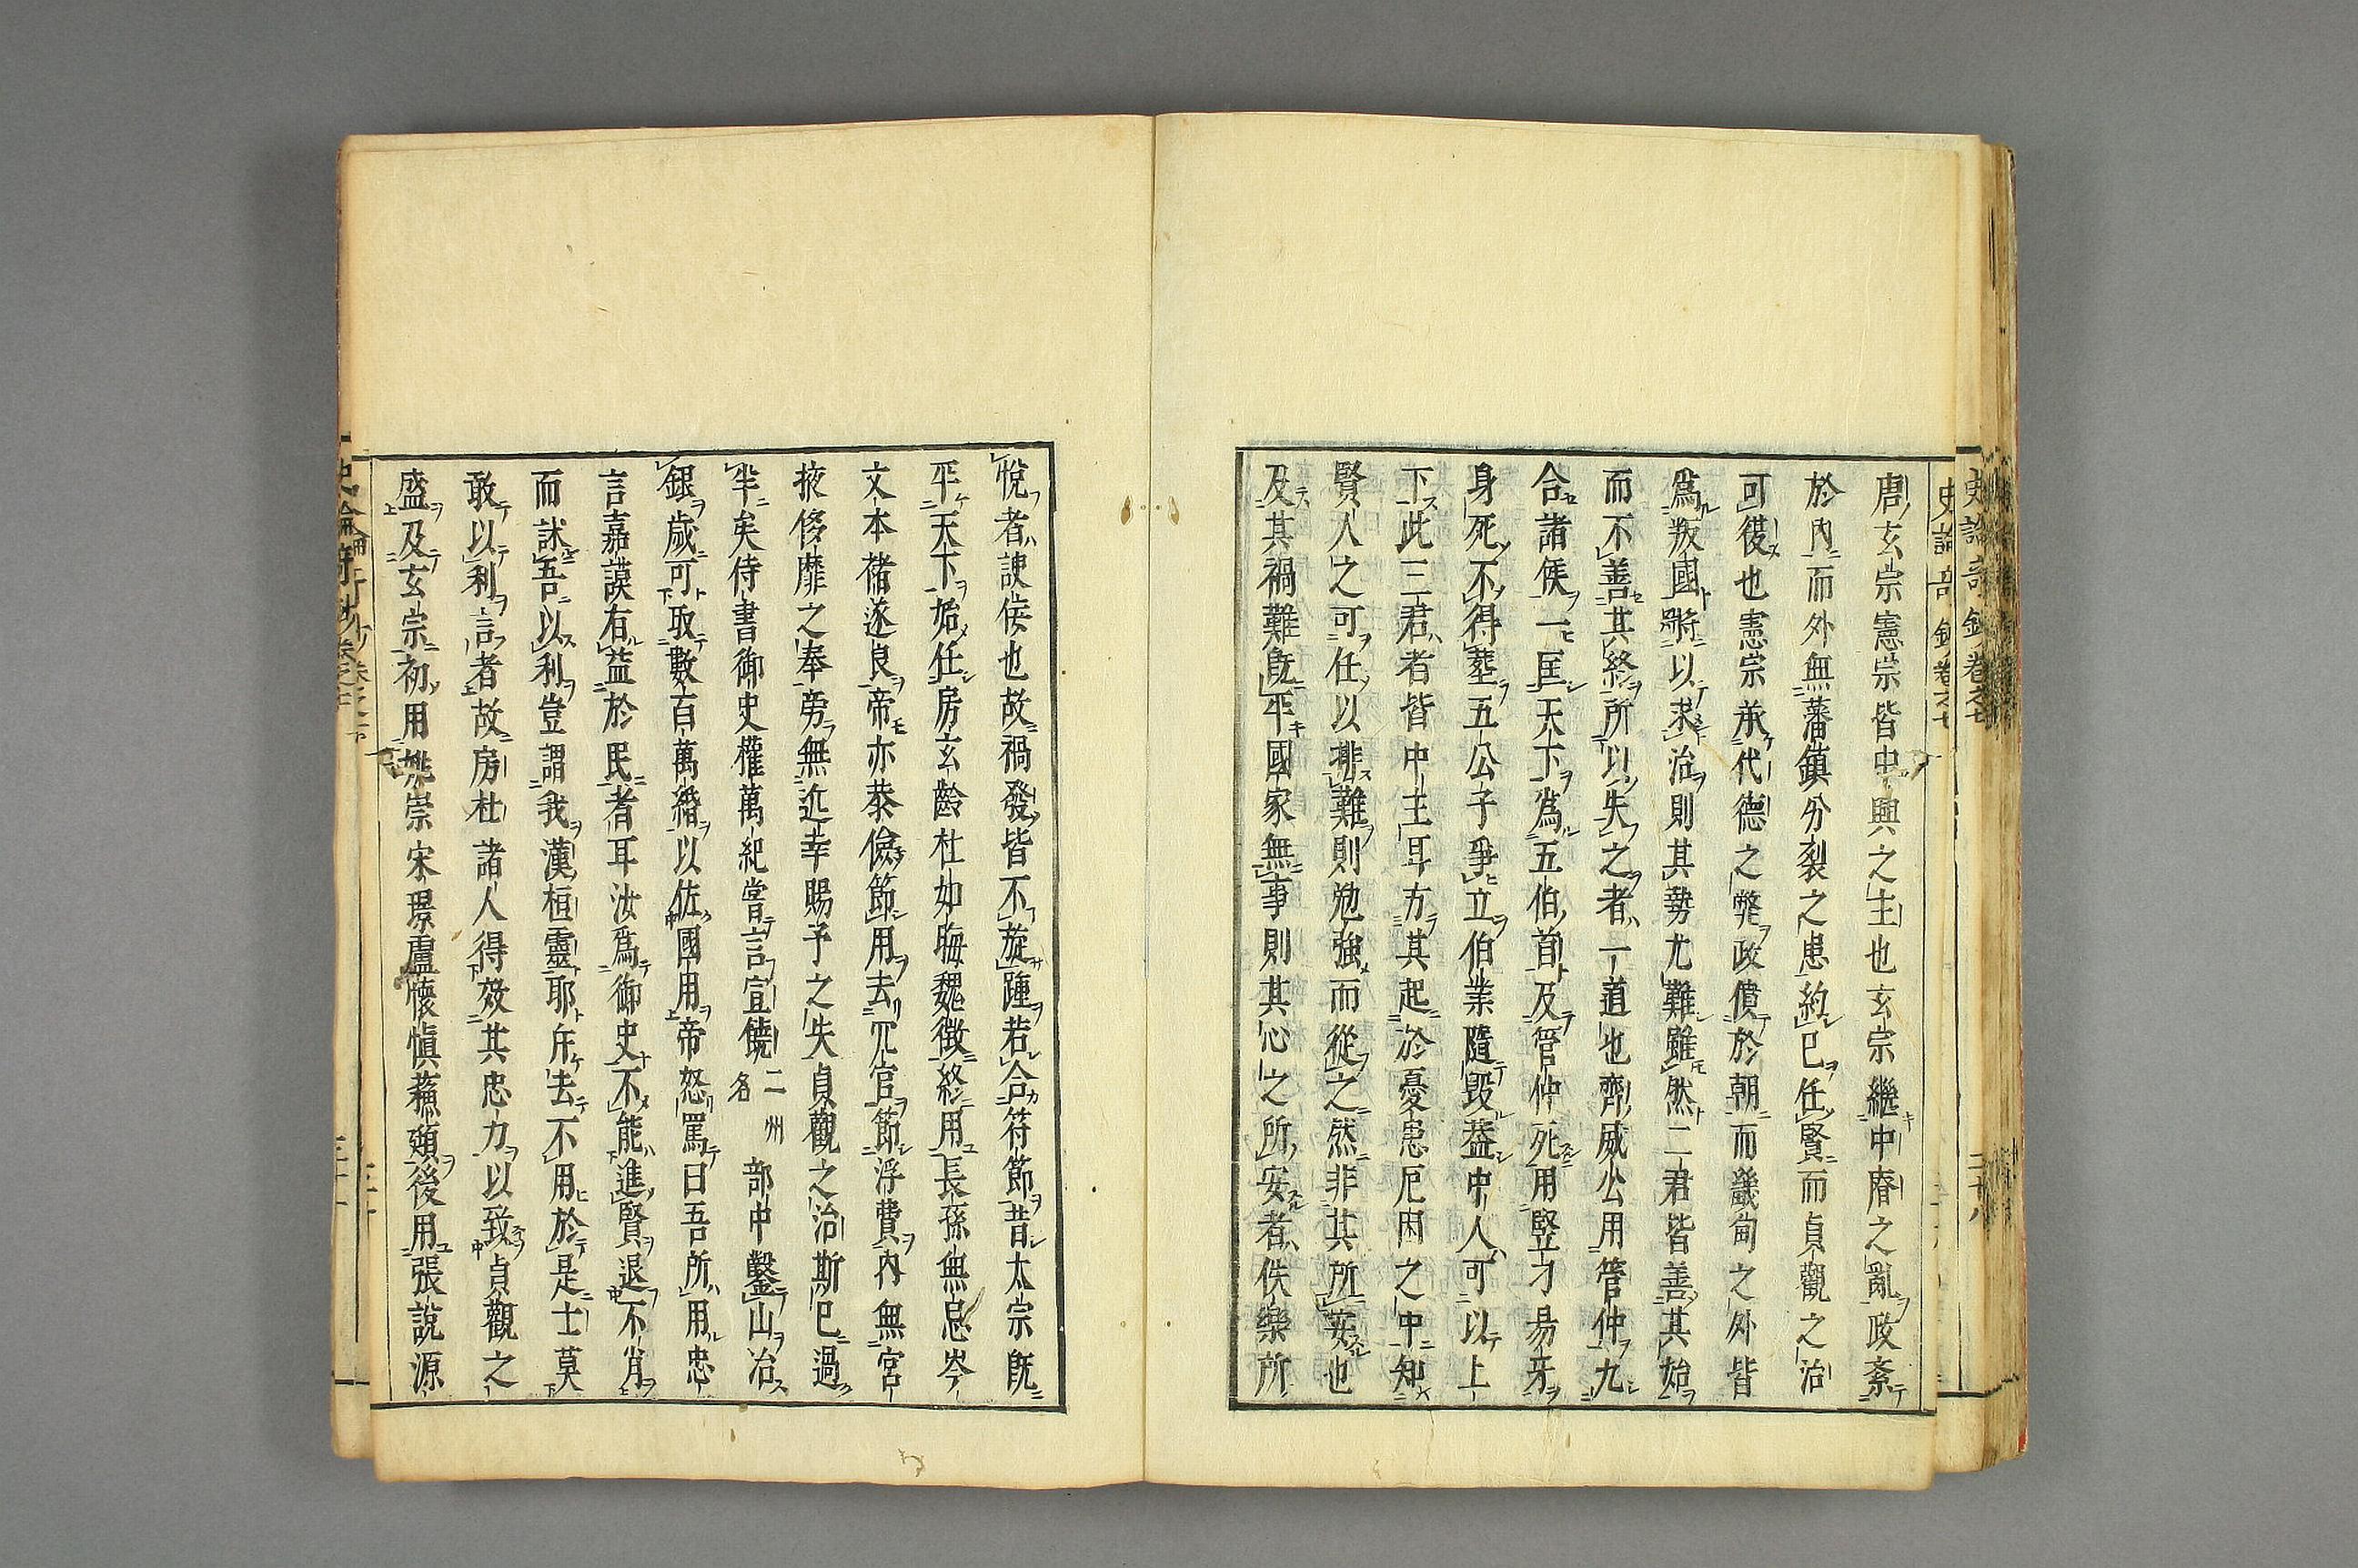 唐玄宗憲宗皆中興之主也玄宗繼中睿之亂政紊
於內而外無藩鎮分裂之患約己任賢而貞觀之治
可復也憲宗承代德之弊政僨於朝而畿甸之外皆
爲叛國將以求治則其勢尤難雖然二君皆善其始
而不善其終所以失之者一道也齊威公用管仲九
合諸侯一匡天下爲五伯首及管仲死用豎刁易牙
身死不得葬五公子爭立伯業隨毀蓋中人可以上
下此三君者皆中主耳方其起於憂患厄困之中知
賢人之可任以排難則勉強而從之然非其所安也
及其禍難既平國家無事則其心之所安者佚樂所
悅者諛佞也故禍發皆不旋踵若合符節昔太宗既
平天下始任房玄齡杜如晦魏徵終用長孫無忌岑
文本褚遂良帝亦恭儉節用去冗官節浮費內無宮
掖侈靡之奉旁無近幸賜予之失貞觀之治斯已過
半矣侍書御史權萬紀嘗言宣饒二州名部中鑿山冶
銀歲可取數百萬緡以佐國用帝怒罵曰吾所用忠
言嘉謨有益於民者耳汝爲御史不能進賢退不肖
而訹吾以利豈謂我漢桓靈耶斥去不用於是士莫
敢以利言者故房杜諸人得效其忠力以致貞觀之
盛及玄宗初用姚崇宋璟盧懷愼蘓頲後用張說源